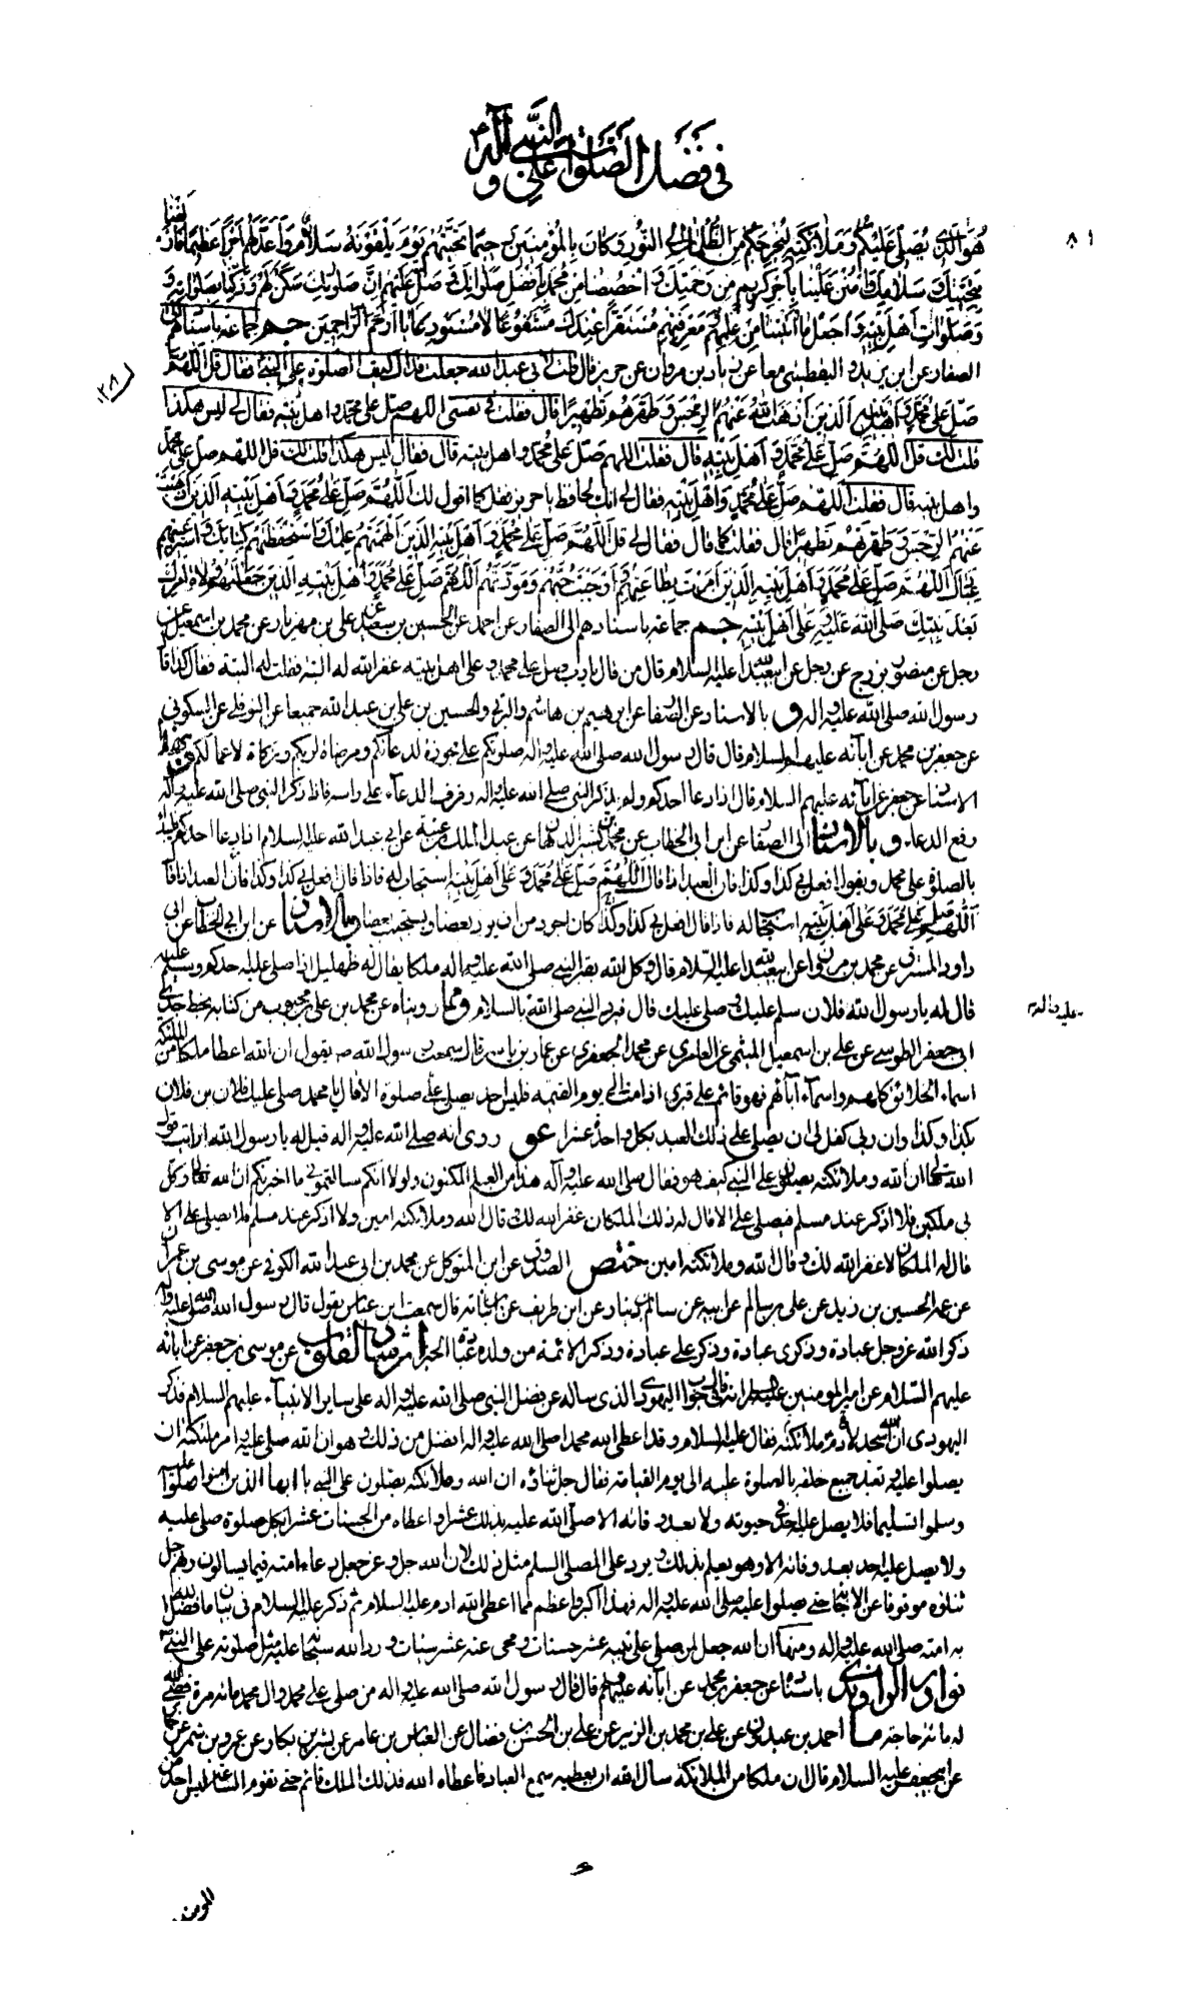 في فضل الصلوات على النبي وآله
٨١
هُوَ الَّذِي يُصَلِّي عَلَيْكُمْ وَمَلَائِكَتُهُ لِيُخْرِجَكُمْ مِنَ الظُّلُمَاتِ إِلَى النُّورِ وَكَانَ بِالْمُؤْمِنِينَ رَحِيمًا تَحِيَّتُهُمْ يَوْمَ يَلْقَوْنَهُ سَلَامٌ وَأَعَدَّ لَهُمْ أَجْرًا عظيما
بتحيتك سلامك وامنن علينا بأجر كريم من رحمتك واخصصنا من محمد بأفضل صلواتك وصل عليهم إن صلوتك سكن لهم وزكنا بصلواته و
وصلوات أهل بيته واجعل ما آتيتنا من علمهم ومعرفتهم مستقرا عندك مشفوعا لا مستودعا يا أرحم الراحمين جم جماعة باسنادهم الى
الصفار عن ابن يزيد واليقطيني معا عن زياد بن مروان عن حريز قال قلت لابي عبد الله جعلت فداك كيف الصلوة على النبي فقال قل اللهم
صل على محمد وأهل بيته الذين أذهب الله عنهم الرجس وطهرهم تطهيرا قال فقلت في نفسي اللهم صل على محمد واهل بيته فقال لي ليس هكذا
قلت لك قل اللهم صل على محمد وأهل بيته قال فقلت اللهم صل على محمد واهل بيته قال فقال ليس هكذا قلت لك قل اللهم صل على محمد
واهل بيته قال فقلت اللهم صل على محمد وأهل بيته فقال لي انك لحافظ يا حريز فقل كما اقول لك اللهم صل على محمد وأهل بيته الذين اذهبت
عنهم الرجس وطهرتهم تطهيرا قال فقلت كما قال فقال لي قل اللهم صل على محمد وأهل بيته الذين ألهمتهم علمك واستحفظتهم كتابك واسترعيتهم
عبادك اللهم صل على محمد وأهل بيته الذين أمرت بطاعتهم وأوجبت حبهم ومودتهم اللهم صل على محمد وأهل بيته الذين جعلتهم ولاة أمرك
بعد نبيك صلى الله عليه وعلى أهل بيته جم جماعة باسنادهم الى الصفار عن احمد عن الحسين بن سعيد عن علي بن مهزيار عن محمد بن اسمعيل عن
رجل عن منصور بزرج عن رجل عن ابي عبد الله عليه السلام قال من قال يا رب صل على محمد وعلى اهل بيته غفر الله له البتة فقلت له البتة فقال كذا قال
رسول الله صلى الله عليه وآله و بالاسناد عن الصفار عن ابرهيم بن هاشم والحسين بن علي بن عبد الله جميعا عن النوفلي عن السكوني
عن جعفر بن محمد عن آبائه عليهم السلام قال قال رسول الله صلى الله عليه وآله صلوتكم علي مجوزة لدعائكم ومرضاة لربكم وزكاة لاعمالكم وبهذا
الاسناد عن جعفر عن آبائه عليهم السلام قال اذا دعا احدكم ولم يذكر النبي صلى الله عليه وآله رفرف الدعاء على راسه فاذا ذكر النبي صلى الله عليه وآله
رفع الدعاء و بالاسناد الى الصفار عن ابن ابي الخطاب عن محمد بن بشير الدهان عن عبد الملك بن عتبة عن ابي عبد الله عليه السلام اذا دعا احدكم فليبدأ
بالصلوة على محمد ويقول افعل بي كذا وكذا فان العبد اذا قال اللهم صل على محمد وعلى أهل بيته استجاب له فاذا قال افعل بي كذا وكذا فان العبد اذا قال
اللهم صل على محمد وعلى أهل بيته استجاب له فاذا قال افعل بي كذا وكذا كان اجود من ان يرد بعضا ويستجيب بعضا وبالاسناد عن ابن ابي الخطاب عن ابي
داود المسترق عن محمد بن مروان عن ابي عبد الله عليه السلام قال وكل الله بقبر النبي صلى الله عليه وآله ملكا يقال له ظهليل اذا صلى عليه احدكم وسلم عليه
قال له يا رسول الله فلان سلم عليك وصلى عليك قال فيرد النبي صلى الله بالسلام ومما رويناه عن محمد بن علي بن محبوب من كتابه بخط جدي
عليه وآله
ابي جعفر الطوسي عن علي بن اسمعيل الميثمي عن العامري عن محمد الجعفري عن عمار بن ياسر قال سمعت رسول الله ص يقول ان الله اعطا ملكا من الملئكة
اسماء الخلائق كلهم واسماء آبائهم فهو قائم على قبري اذا مت الى يوم القيمة فليس احد يصلي علي صلوة الا قال يا محمد صلى عليك فلان بن فلان
بكذا وكذا وان ربي كفل لي ان يصلي على ذلك العبد بكل واحدة عشرا عو روى انه صلى الله عليه وآله قيل له يا رسول الله ارايت قول
الله تعالى ان الله وملائكته يصلون على النبي كيف هو فقال صلى الله عليه وآله هذا من العلم المكنون ولولا انكم سالتموني ما اخبرتكم ان الله تعالى وكل
بي ملكين فلا اذكر عند مسلم فيصلي علي الا قال له ذلك الملكان غفر الله لك وقال الله وملائكته امين ولا اذكر عند مسلم فلا يصلي علي الا
قال له الملكان لا غفر الله لك وقال الله وملائكته امين ختص الصدوق عن ابن المتوكل عن محمد بن ابي عبد الله الكوفي عن موسى بن عمران
عن عمه الحسين بن زيد عن علي بن سالم عن ابيه عن سالم بن دينار عن ابن طريف عن ابن نباتة قال سمعت ابن عباس يقول قال رسول الله صلى الله عليه وآله
ذكر الله عز وجل عبادة وذكري عبادة وذكر علي عبادة وذكر الائمة من ولده عبادة الخبر ارشاد القلوب عن موسى بن جعفر عن آبائه
عليهم السلام عن امير المومنين عليه السلام انه قال في جواب اليهودي الذي ساله عن فضل النبي صلى الله عليه وآله على ساير الانبياء عليهم السلام فذكر
اليهودي ان الله اسجد لادم ملائكته فقال عليه السلام وقد اعطى الله محمدا صلى الله عليه وآله افضل من ذلك وهو ان الله صلى عليه وامر ملئكته ان
يصلوا عليه وتعبد جميع خلقه بالصلوة عليه الى يوم القيامة فقال جل ثناؤه ان الله وملائكته يصلون على النبي يا ايها الذين امنوا صلوا عليه
وسلموا تسليما فلا يصل عليه احد في حيوته ولا بعد وفاته الا صلى الله عليه بذلك عشرا واعطاه من الحسنات عشرا بكل صلوة صلى عليه
ولا يصل عليه احد بعد وفاته الا وهو يعلم بذلك ويرد على المصلي السلم مثل ذلك لان الله جل وعز جعل دعاء امته فيما يسالون ربهم جل
ثناؤه موقوفا عن الاجابة حتى يصلوا عليه صلى الله عليه وآله فهذا اكبر واعظم مما اعطى الله ادم عليه السلام ثم ذكر عليه السلام في بيان ما فضل الله
به امته صلى الله عليه وآله ومنها ان الله جعل لمن صلى على نبيه عشر حسنات ومحى عنه عشر سيئات ورد الله سبحانه عليه مثل صلوته على النبي
نوادر الراوندي باسناده عن جعفر بن محمد عن آبائه عليهم السلام قال قال رسول الله صلى الله عليه وآله من صلى على محمد وآل محمد مائة مرة قضى الله
له مائة حاجة ما احمد بن عبدون عن علي بن محمد بن الزبير عن علي بن الحسن بن فضال عن العباس بن عامر عن بشر بن بكار عن عمرو بن شمر عن جابر
عن ابي جعفر عليه السلام قال ان ملكا من الملائكة سال الله ان يعطيه سمع العباد فاعطاه الله فذلك الملك قائم حتى تقوم الساعة ليس احد من
المومنين